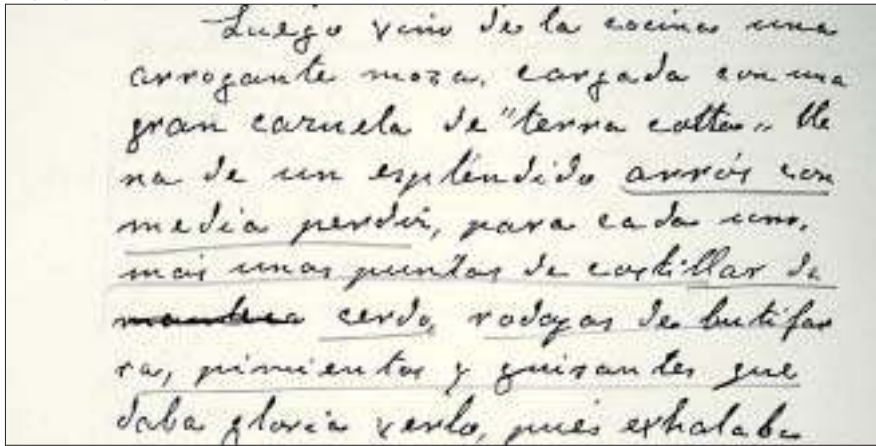 Luego vino de la cocina una
arrogante moza, cargada con una
gran cazuela de "terra cotta" lle
na de un espléndido arrós con
media perdiz, para cada uno,
mais unas puntas de costillar de
cerdo, rodajas de butifar
ra, pimientos y guisantes que
daba gloria verlo, pués exhalaba